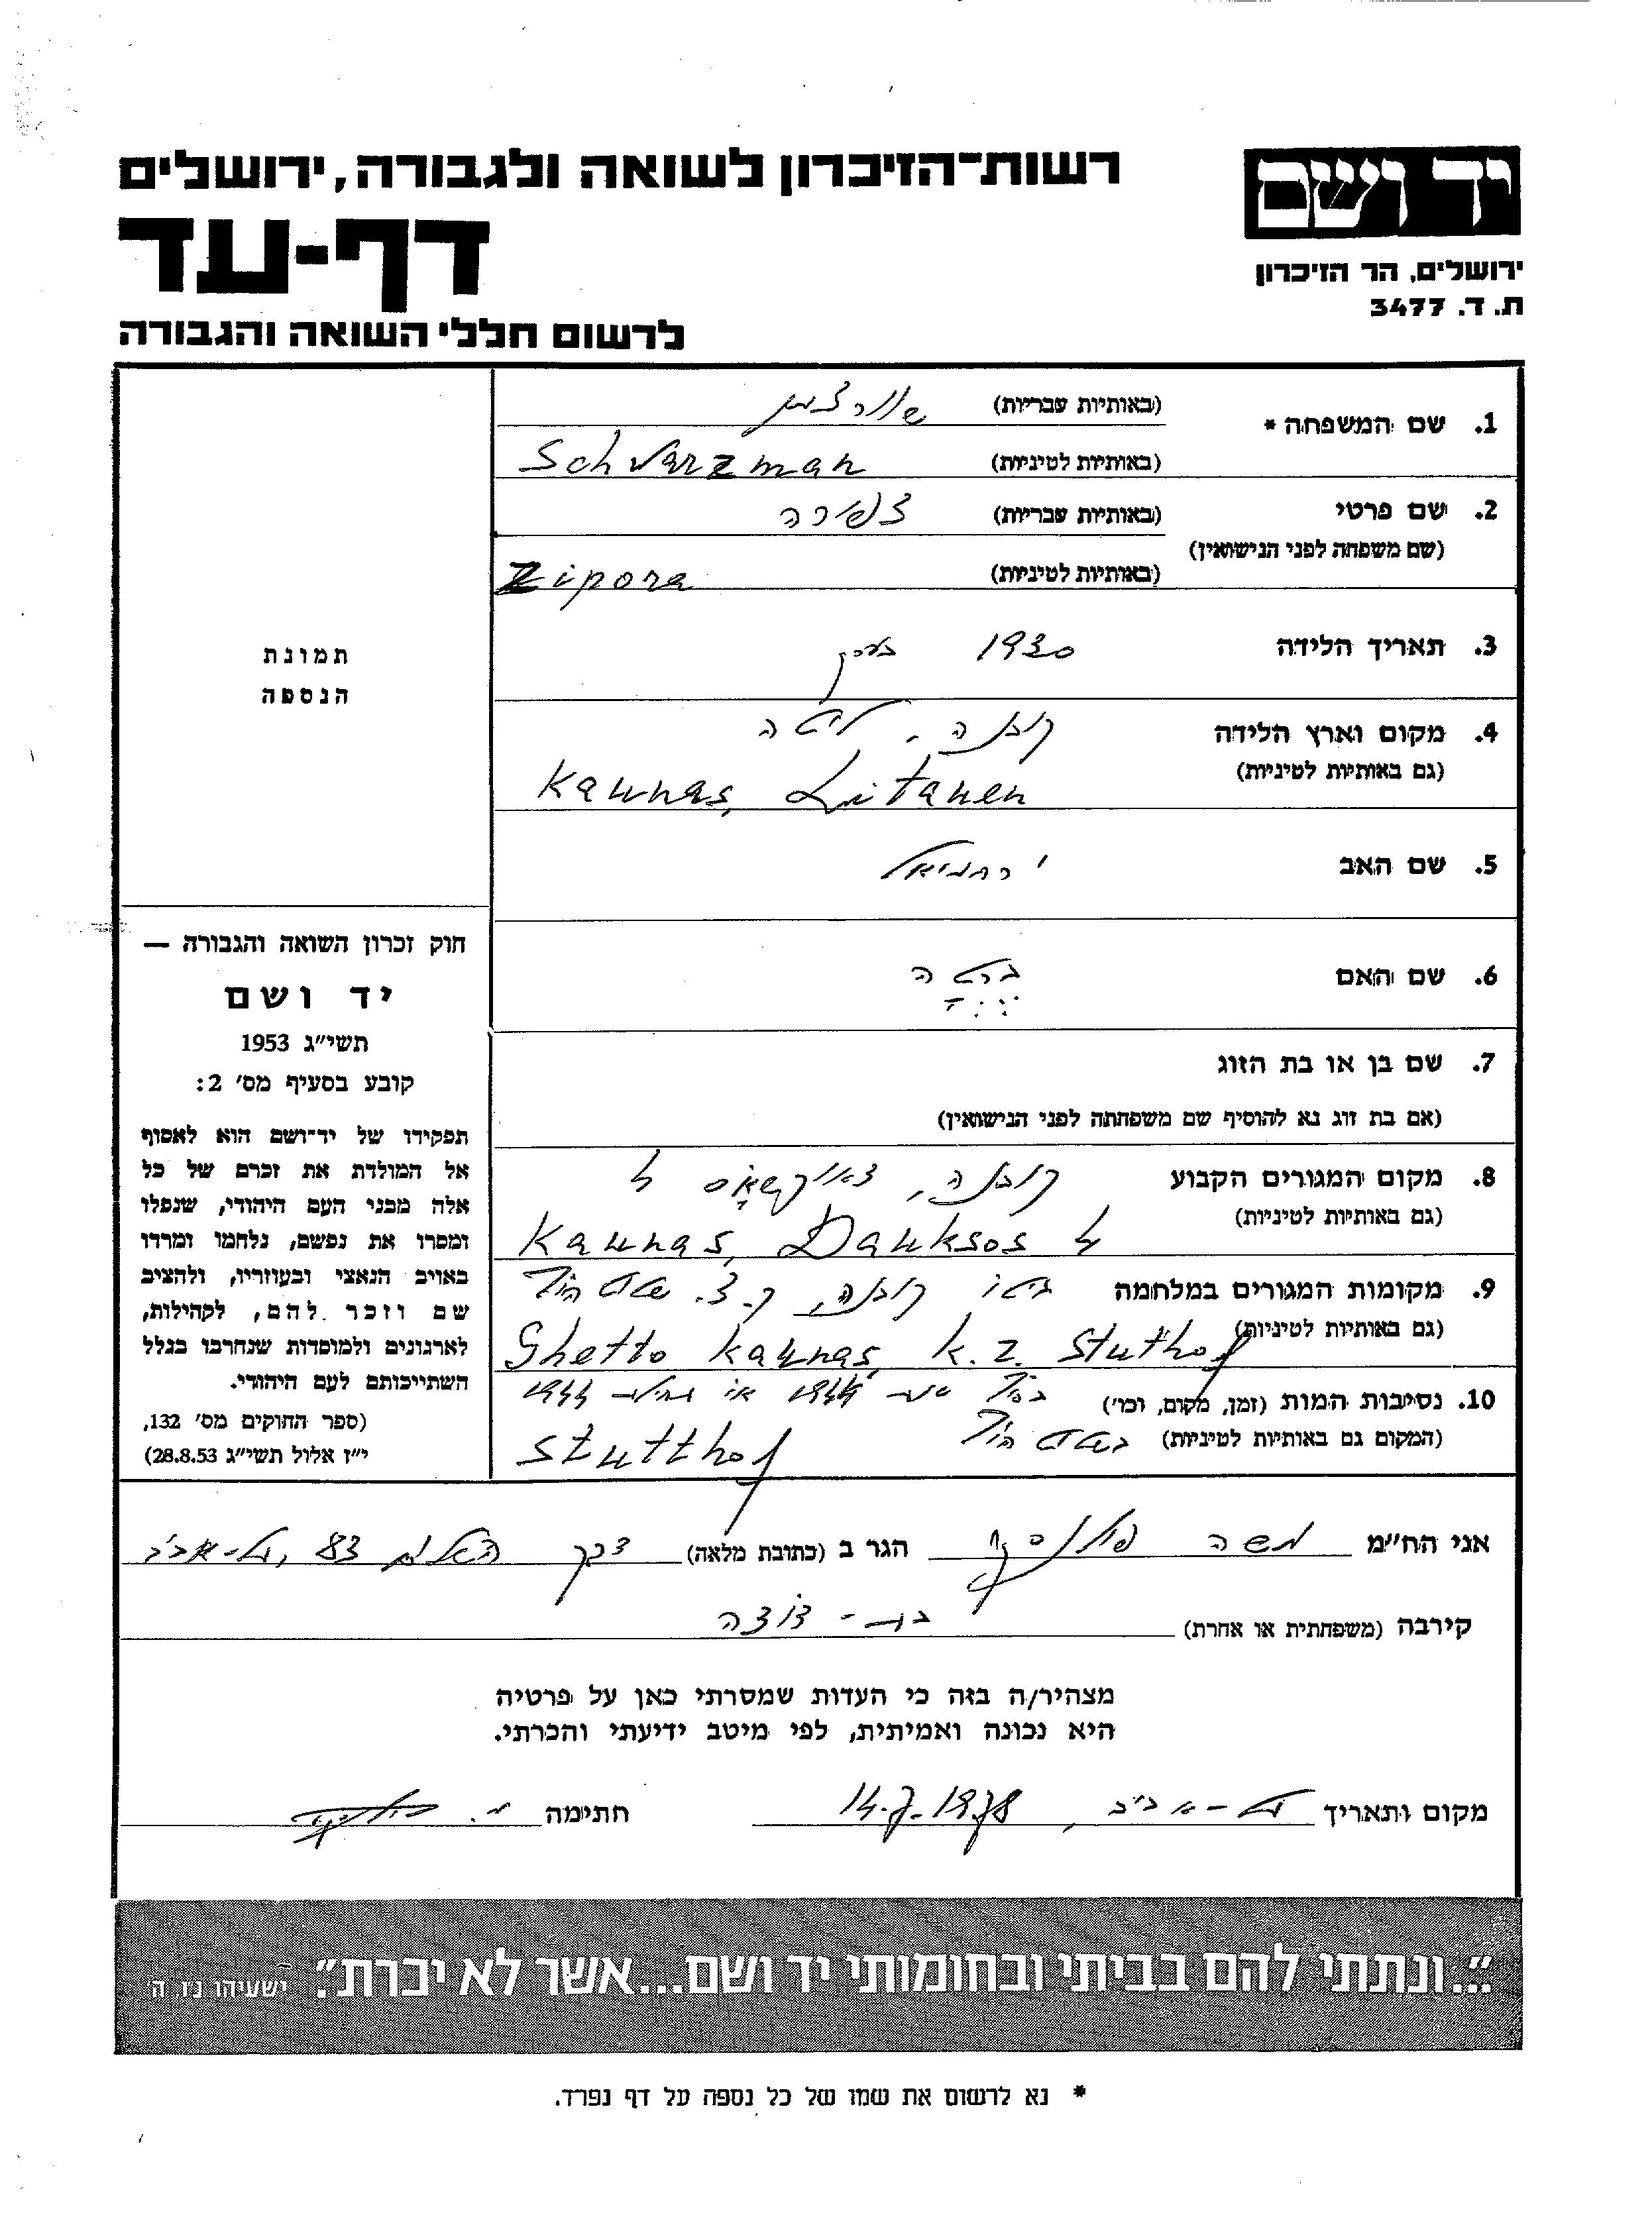 רשות־הזיכרון לשואה ולגבורה, ירושלים
יד ושם
דף-עד
ירושלים, הר הזיכרון
ת. ד. 3477
לרשום חללי השואה והגבורה
1. שם המשפחה * (באותיות עבריות) שוורצמן
(באותיות לטיניות) Schvarzman
2. שם פרטי (באותיות עבריות) צפורה
(שם משפחה לפני הנישואין)
(באותיות לטיניות) Zipora
3. תאריך הלידה 1930 בערך
4. מקום וארץ הלידה קובנה, ליטה
(גם באותיות לטיניות) Kaunas, Litauen
5. שם האב ירחמיאל
6. שם האם ברטה
7. שם בן או בת הזוג
(אם בת זוג נא להוסיף שם משפחתה לפני הנישואין)
8. מקום המגורים הקבוע קובנה, 4
(גם באותיות לטיניות) Kaunas, Dauksos 4
9. מקומות המגורים במלחמה גטו קובנה, ק.צ. שטוטהוף
(גם באותיות לטיניות) Ghetto Kaunas, K.Z. Stutthof
10. נסיבות המות (זמן, מקום, וכו') 1944 או 1944
(המקום גם באותיות לטיניות) בשטוטהוף Stutthof
תמונת
הנספה
חוק זכרון השואה והגבורה —
יד ושם
תשי״ג 1953
קובע בסעיף מס' 2:
תפקידו של יד־ושם הוא לאסוף
אל המולדת את זכרם של כל
אלה מבני העם היהודי, שנפלו
ומסרו את נפשם, נלחמו ומרדו
באויב הנאצי ובעוזריו, ולהציב
שם וזכר להם, לקהילות,
לארגונים ולמוסדות שנחרבו בגלל
השתייכותם לעם היהודי.
(ספר החוקים מס' 132,
י״ז אלול תשי״ג 28.8.53)
אני הח״מ משה הגר ב (כתובת מלאה) דרך השלום 83, תל-אביב
קירבה (משפחתית או אחרת) בת-דודה
מצהיר/ה בזה כי העדות שמסרתי כאן על פרטיה
היא נכונה ואמיתית, לפי מיטב ידיעתי והכרתי.
מקום ותאריך תל-אביב, 14.7.1978 חתימה
״...ונתתי להם בביתי ובחומותי יד ושם...אשר לא יכרת״. ישעיהו נ״ו, ה'
* נא לרשום את שמו של כל נספה על דף נפרד.